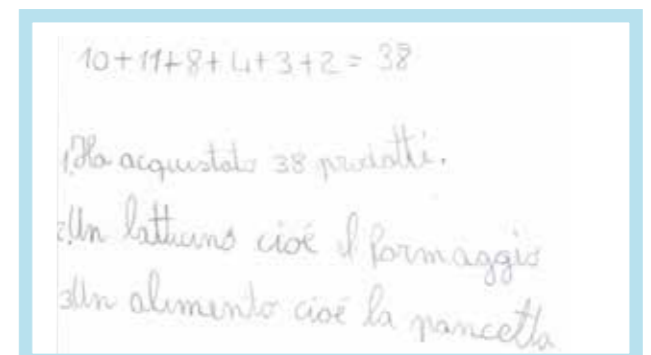 10+11+8+4+3+2 = 38
1. Ha acquistato 38 prodotti.
2. Un latticino cioè il formaggio
3. Un alimento cioè la pancetta